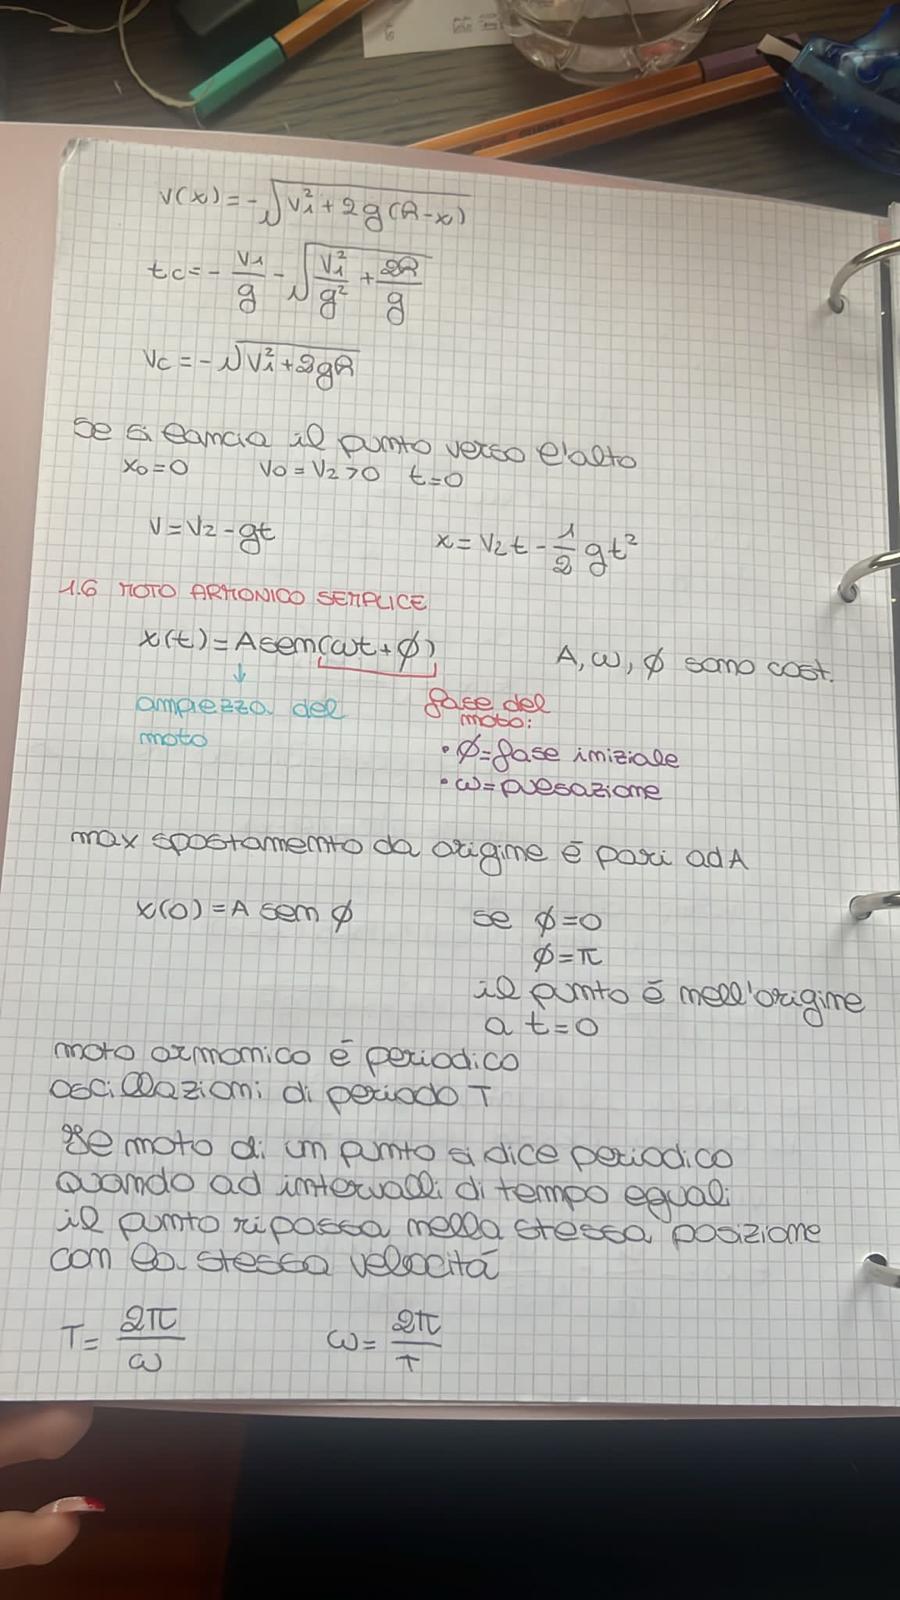 v(x) = -√(v₁² + 2g(h-x))
tc = - v₁/g - √(v₁²/g² + 2h/g)
vc = -√(v₁² + 2gh)
se si lancia il punto verso l'alto
x₀=0 v₀=v₂>0 t=0
v=v₂-gt x=v₂t - 1/2 gt²
1.6 MOTO ARMONICO SEMPLICE
x(t)=A sen(ωt+ϕ) A, ω, ϕ sono cost.
↓
ampiezza del moto
fase del moto:
• ϕ=fase iniziale
• ω=pulsazione
max spostamento da origine è pari ad A
x(0)=A sen ϕ se ϕ=0
ϕ=π
il punto è nell'origine
a t=0
moto armonico è periodico
oscillazioni di periodo T
Il moto di un punto si dice periodico
quando ad intervalli di tempo eguali
il punto ripassa nella stessa posizione
con la stessa velocità
T= 2π/ω ω= 2π/T